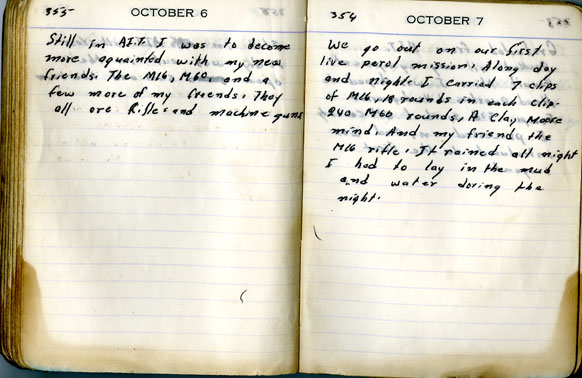 355
OCTOBER 6
Still in A.I.T. I was to become
more aquainted with my new
friends. The M16, M60, and a
few more of my friends. They
all are Rifles and machine guns
354
OCTOBER 7
We go out on our first
live perol mission. Along day
and night. I carried 7 clips
of M16, 18 rounds in each clip.
240 M60 rounds, A Clay Moore
mind. And my friend the
M16 rifle. It rained all night
I had to lay in the mud
and water doring the
night.